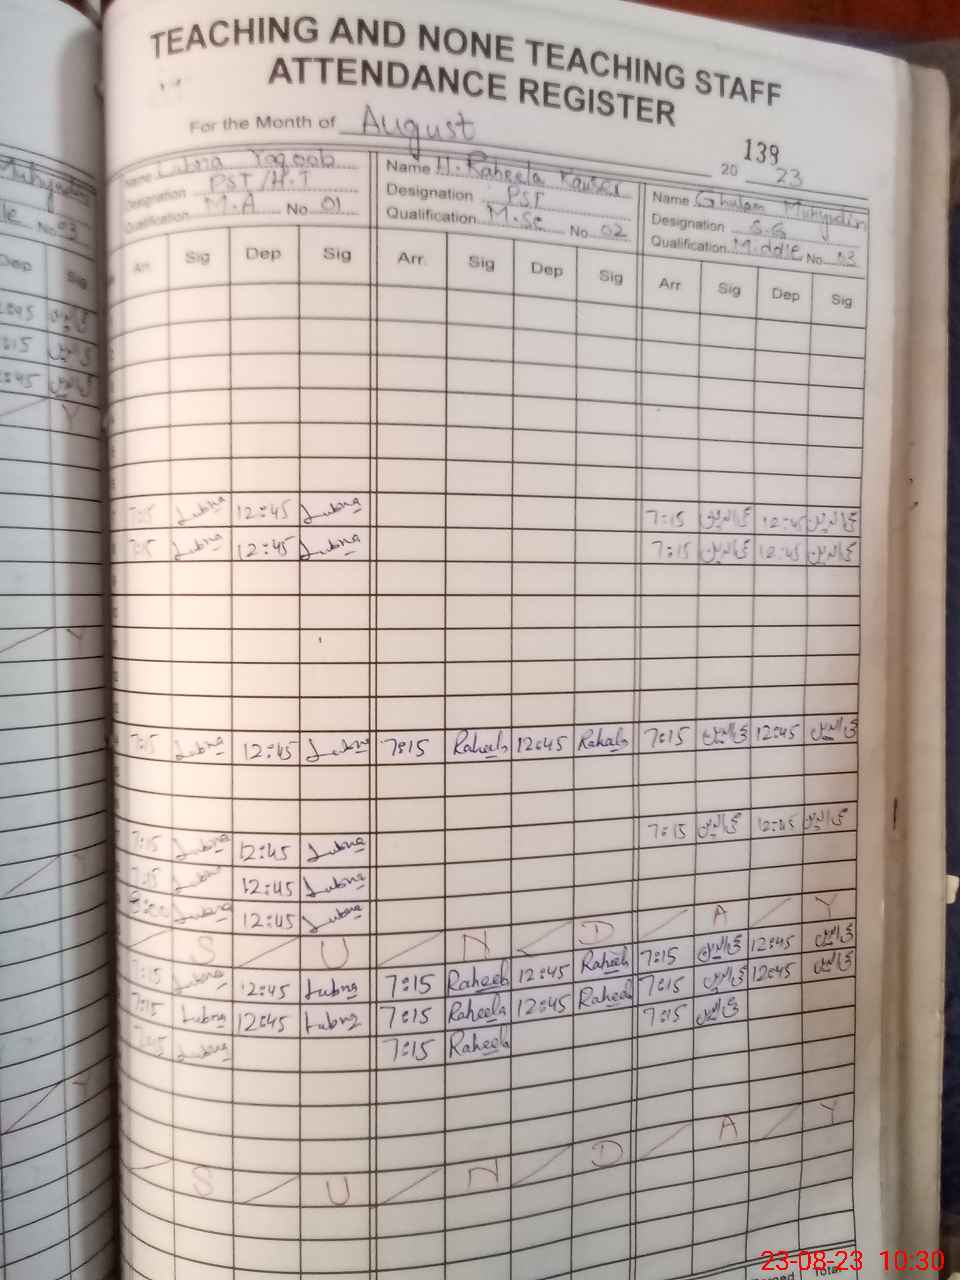 TEACHING AND NONE TEACHING STAFF
ATTENDANCE REGISTER
For the Month of August
139
20 23
Name Lubna Yaqoob Name H. Raheela Kauser Name Ghulam Muhyudin
Designation PST/H.T Designation PST Designation S.G
Qualification M.A No 01 Qualification M.Sc No 02 Qualification Middle No 03
Arr. Sig Dep Sig Arr. Sig Dep Sig Arr Sig Dep Sig
Dep Sig
7:15 Lubna 12:45 Lubna 7:15 12:45
7:15 Lubna 12:45 Lubna 7:15 12:45
7:15 Lubna 12:45 Lubna 7:15 Raheela 12:45 Rahala 7:15 12:45
7:15 Lubna 12:45 Lubna 7:15 12:45
7:15 Lubna 12:45 Lubna
8:00 Lubna 12:45 Lubna
S U N D A Y
7:15 Lubna 12:45 Lubna 7:15 Raheela 12:45 Raheela 7:15 12:45
7:15 Lubna 12:45 Lubna 7:15 Raheela 12:45 Raheela 7:15 12:45
7:15 Lubna 7:15 Raheela 7:15
S U N D A Y
Total
23-08-23 10:30